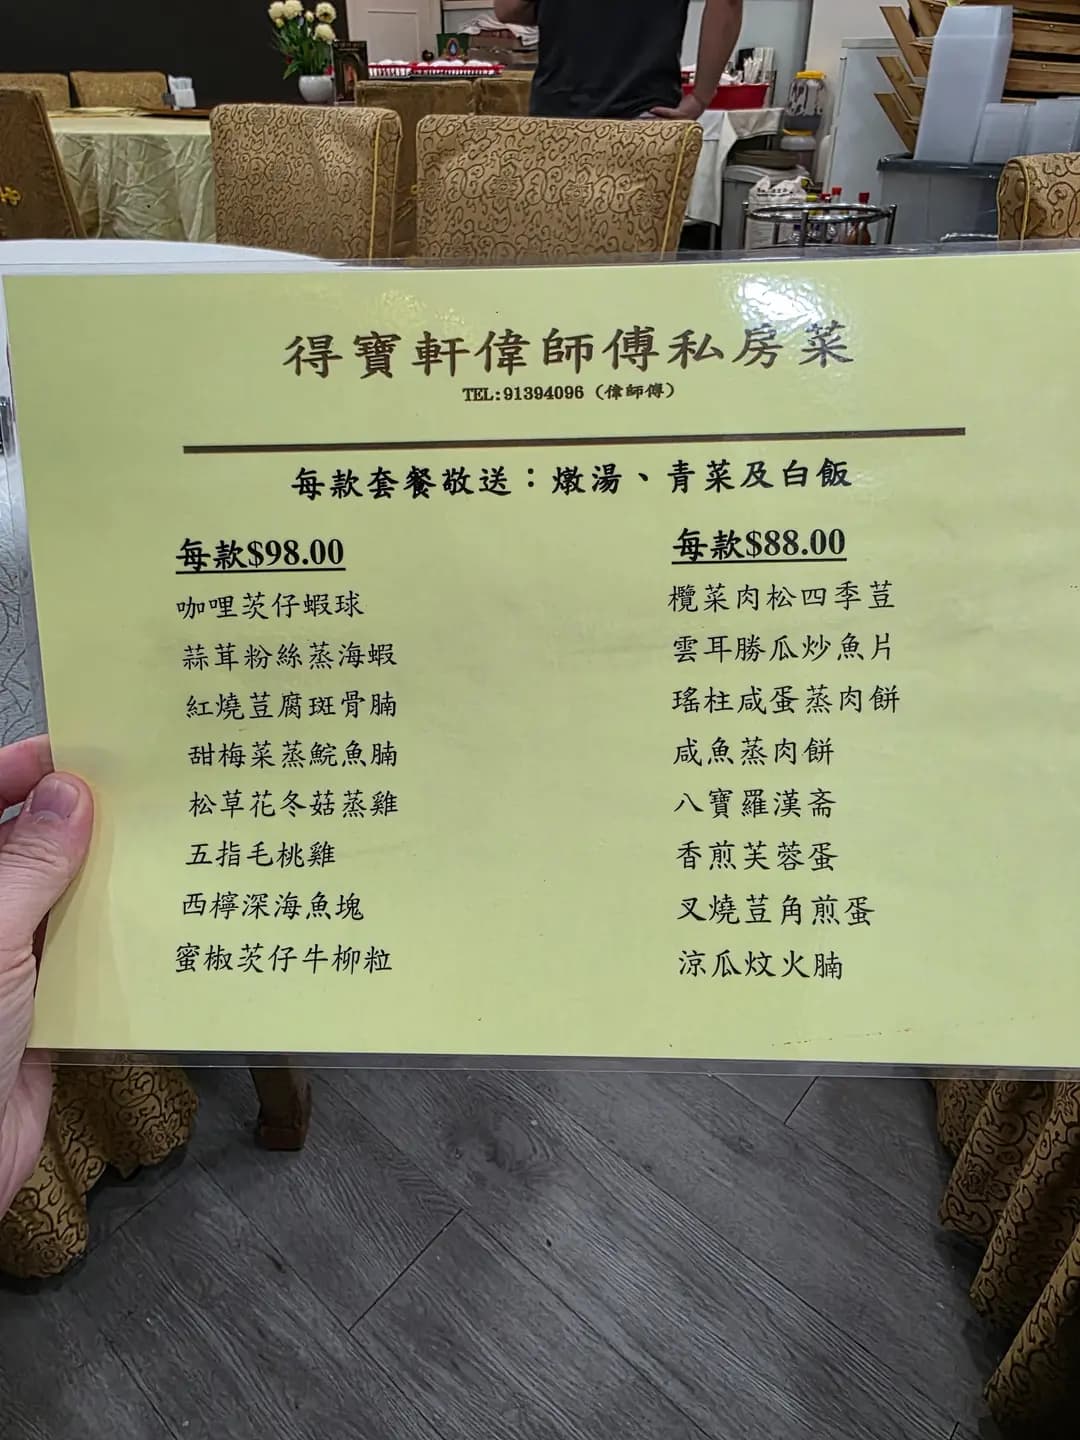 得寶軒偉師傅私房菜
TEL:91394096 (偉師傅)
每款套餐敬送：燉湯、青菜及白飯
每款$98.00
咖哩茨仔蝦球
蒜茸粉絲蒸海蝦
紅燒荳腐斑骨腩
甜梅菜蒸鯇魚腩
松草花冬菇蒸雞
五指毛桃雞
西檸深海魚塊
蜜椒茨仔牛柳粒
每款$88.00
欖菜肉松四季荳
雲耳勝瓜炒魚片
瑤柱咸蛋蒸肉餅
咸魚蒸肉餅
八寶羅漢斋
香煎芙蓉蛋
叉燒荳角煎蛋
涼瓜炆火腩